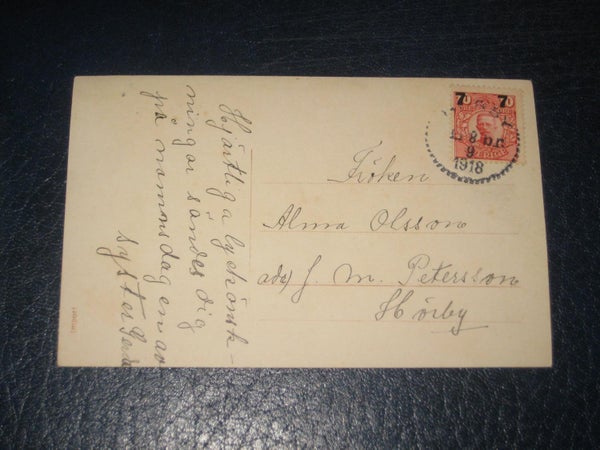 Hjärtliga lyckönsk-
ningar sändes dig
på namnsdagen av
syster
Fröken
Alma Olsson
adr J. M. Petersson
Hörby
7 7
8
9
1918
Import